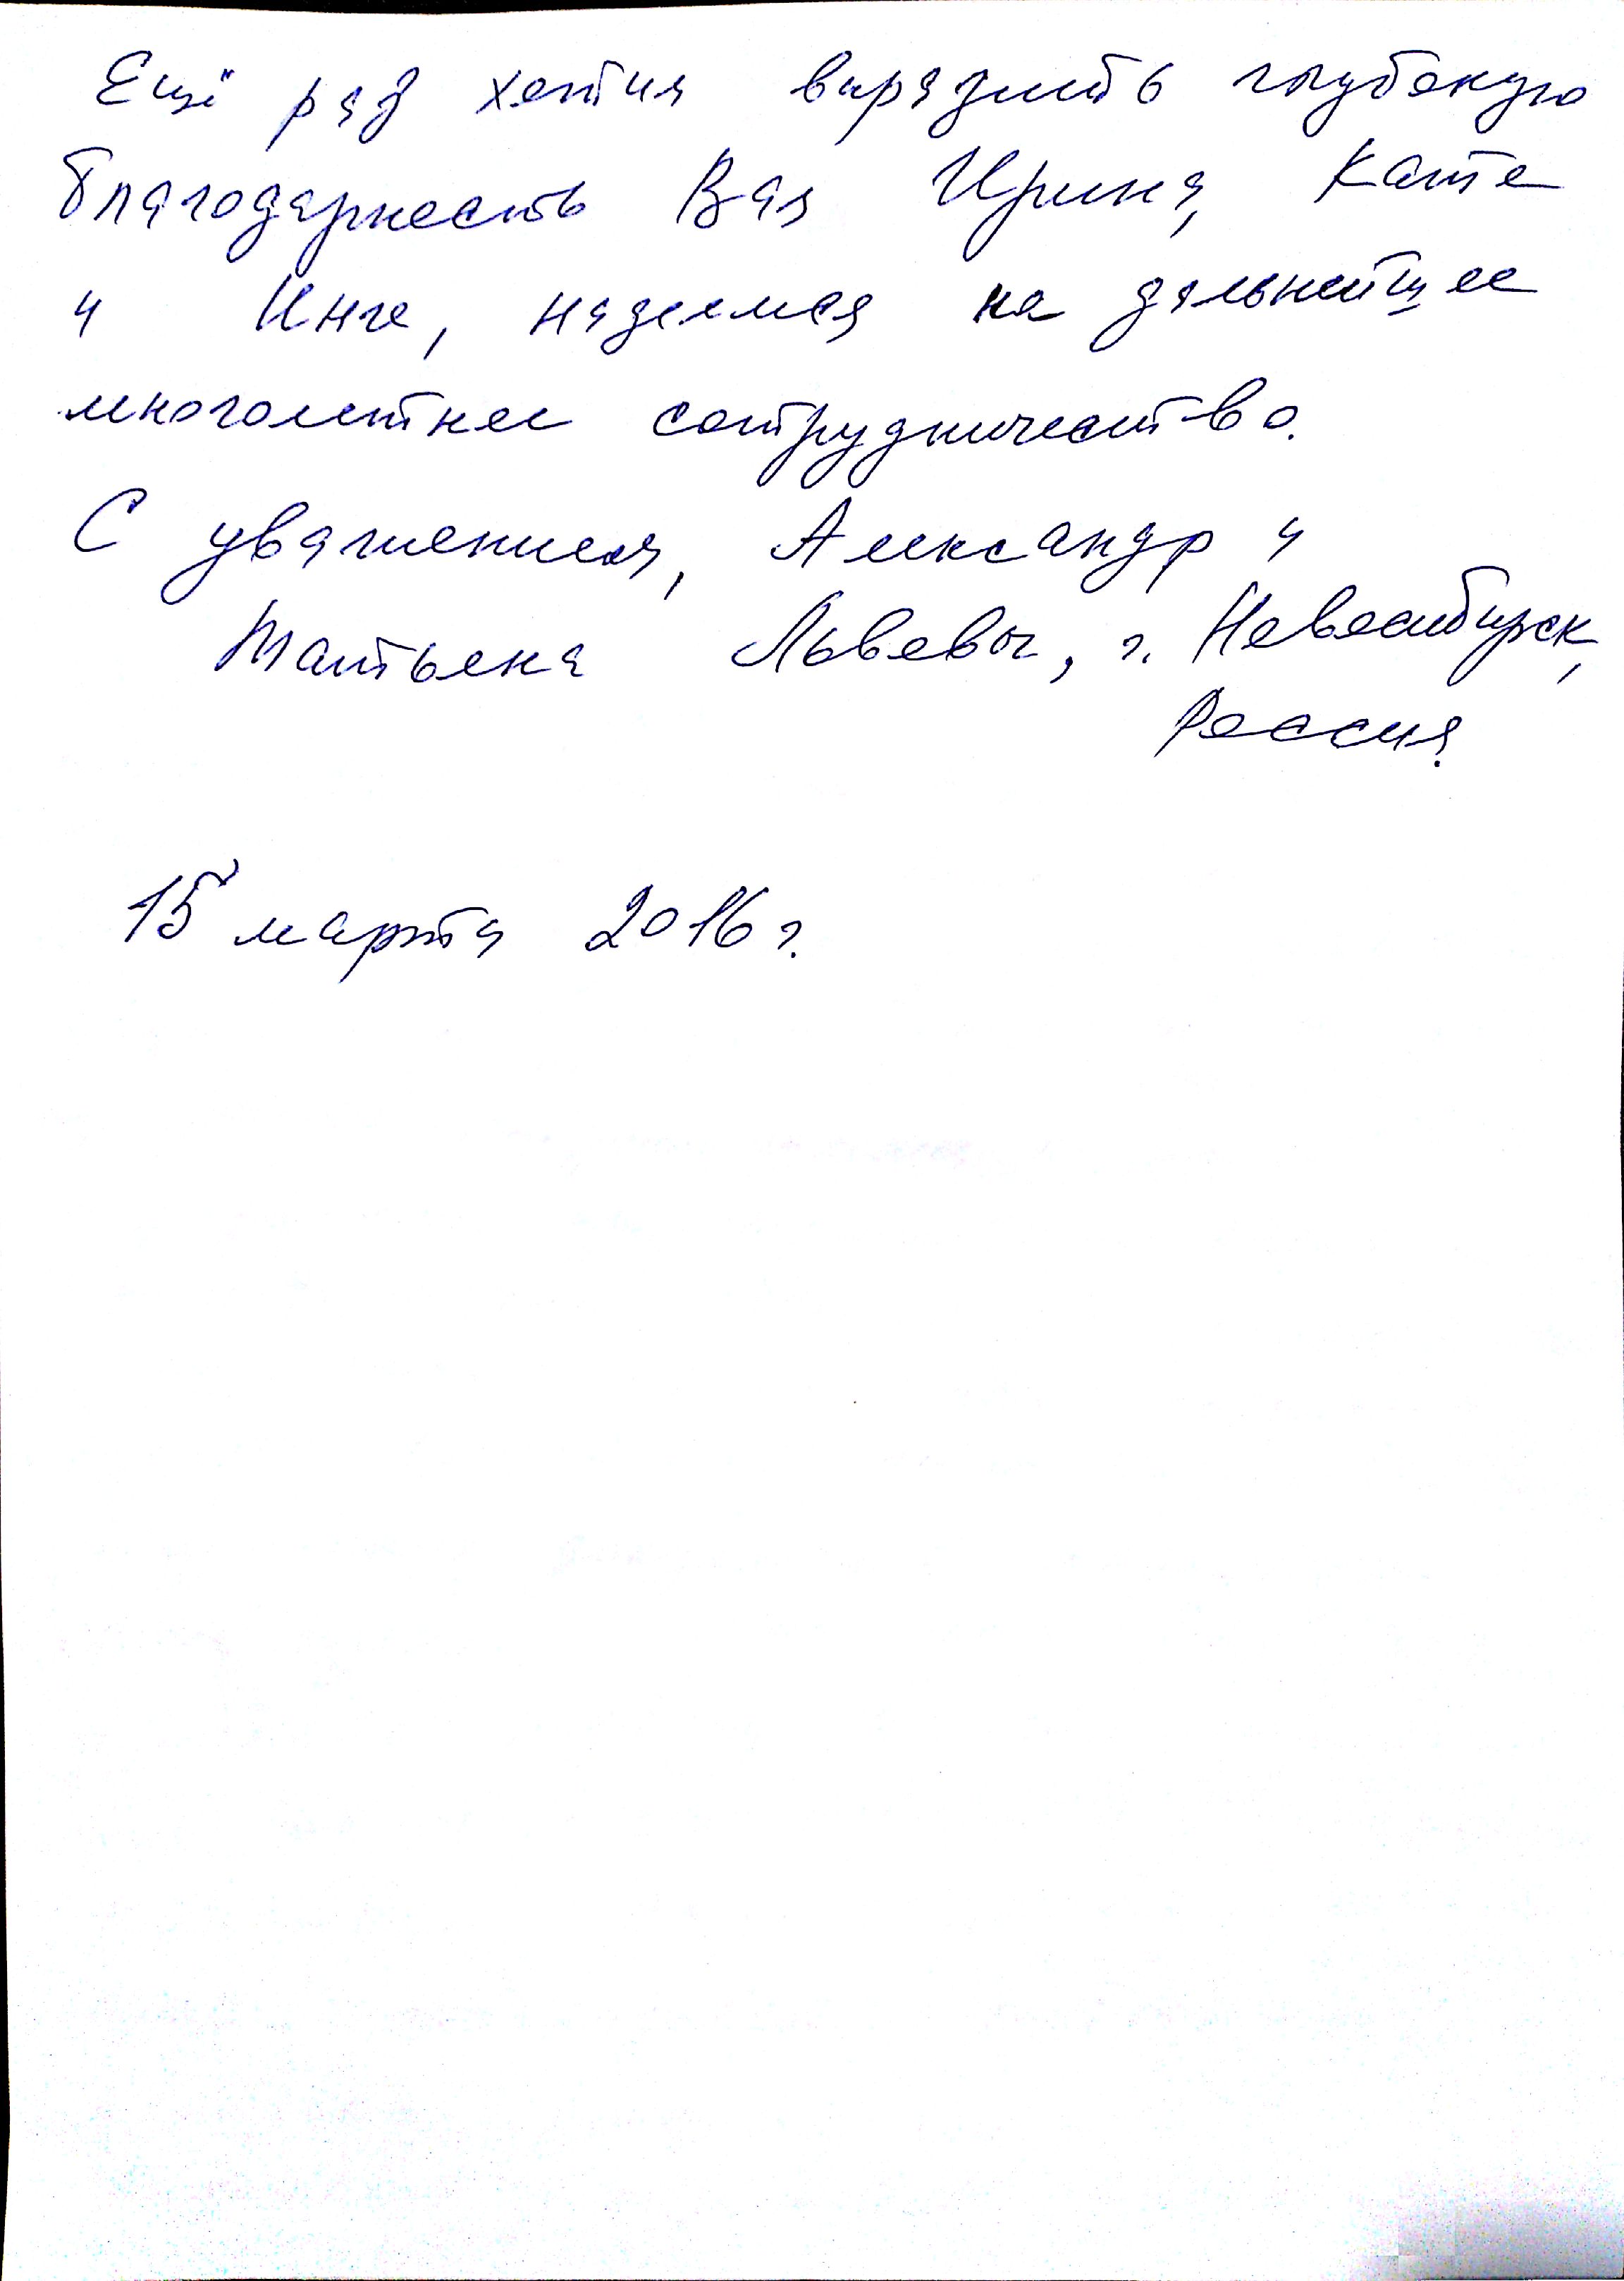 Ещё раз хотим выразить глубокую
благодарность Вам Ирина, Кате
и Инге, надеемся на дальнейшее
многолетнее сотрудничество.
С уважением, Александр и
Татьяна Львовы, г. Новосибирск,
Россия.
15 марта 2016 г.